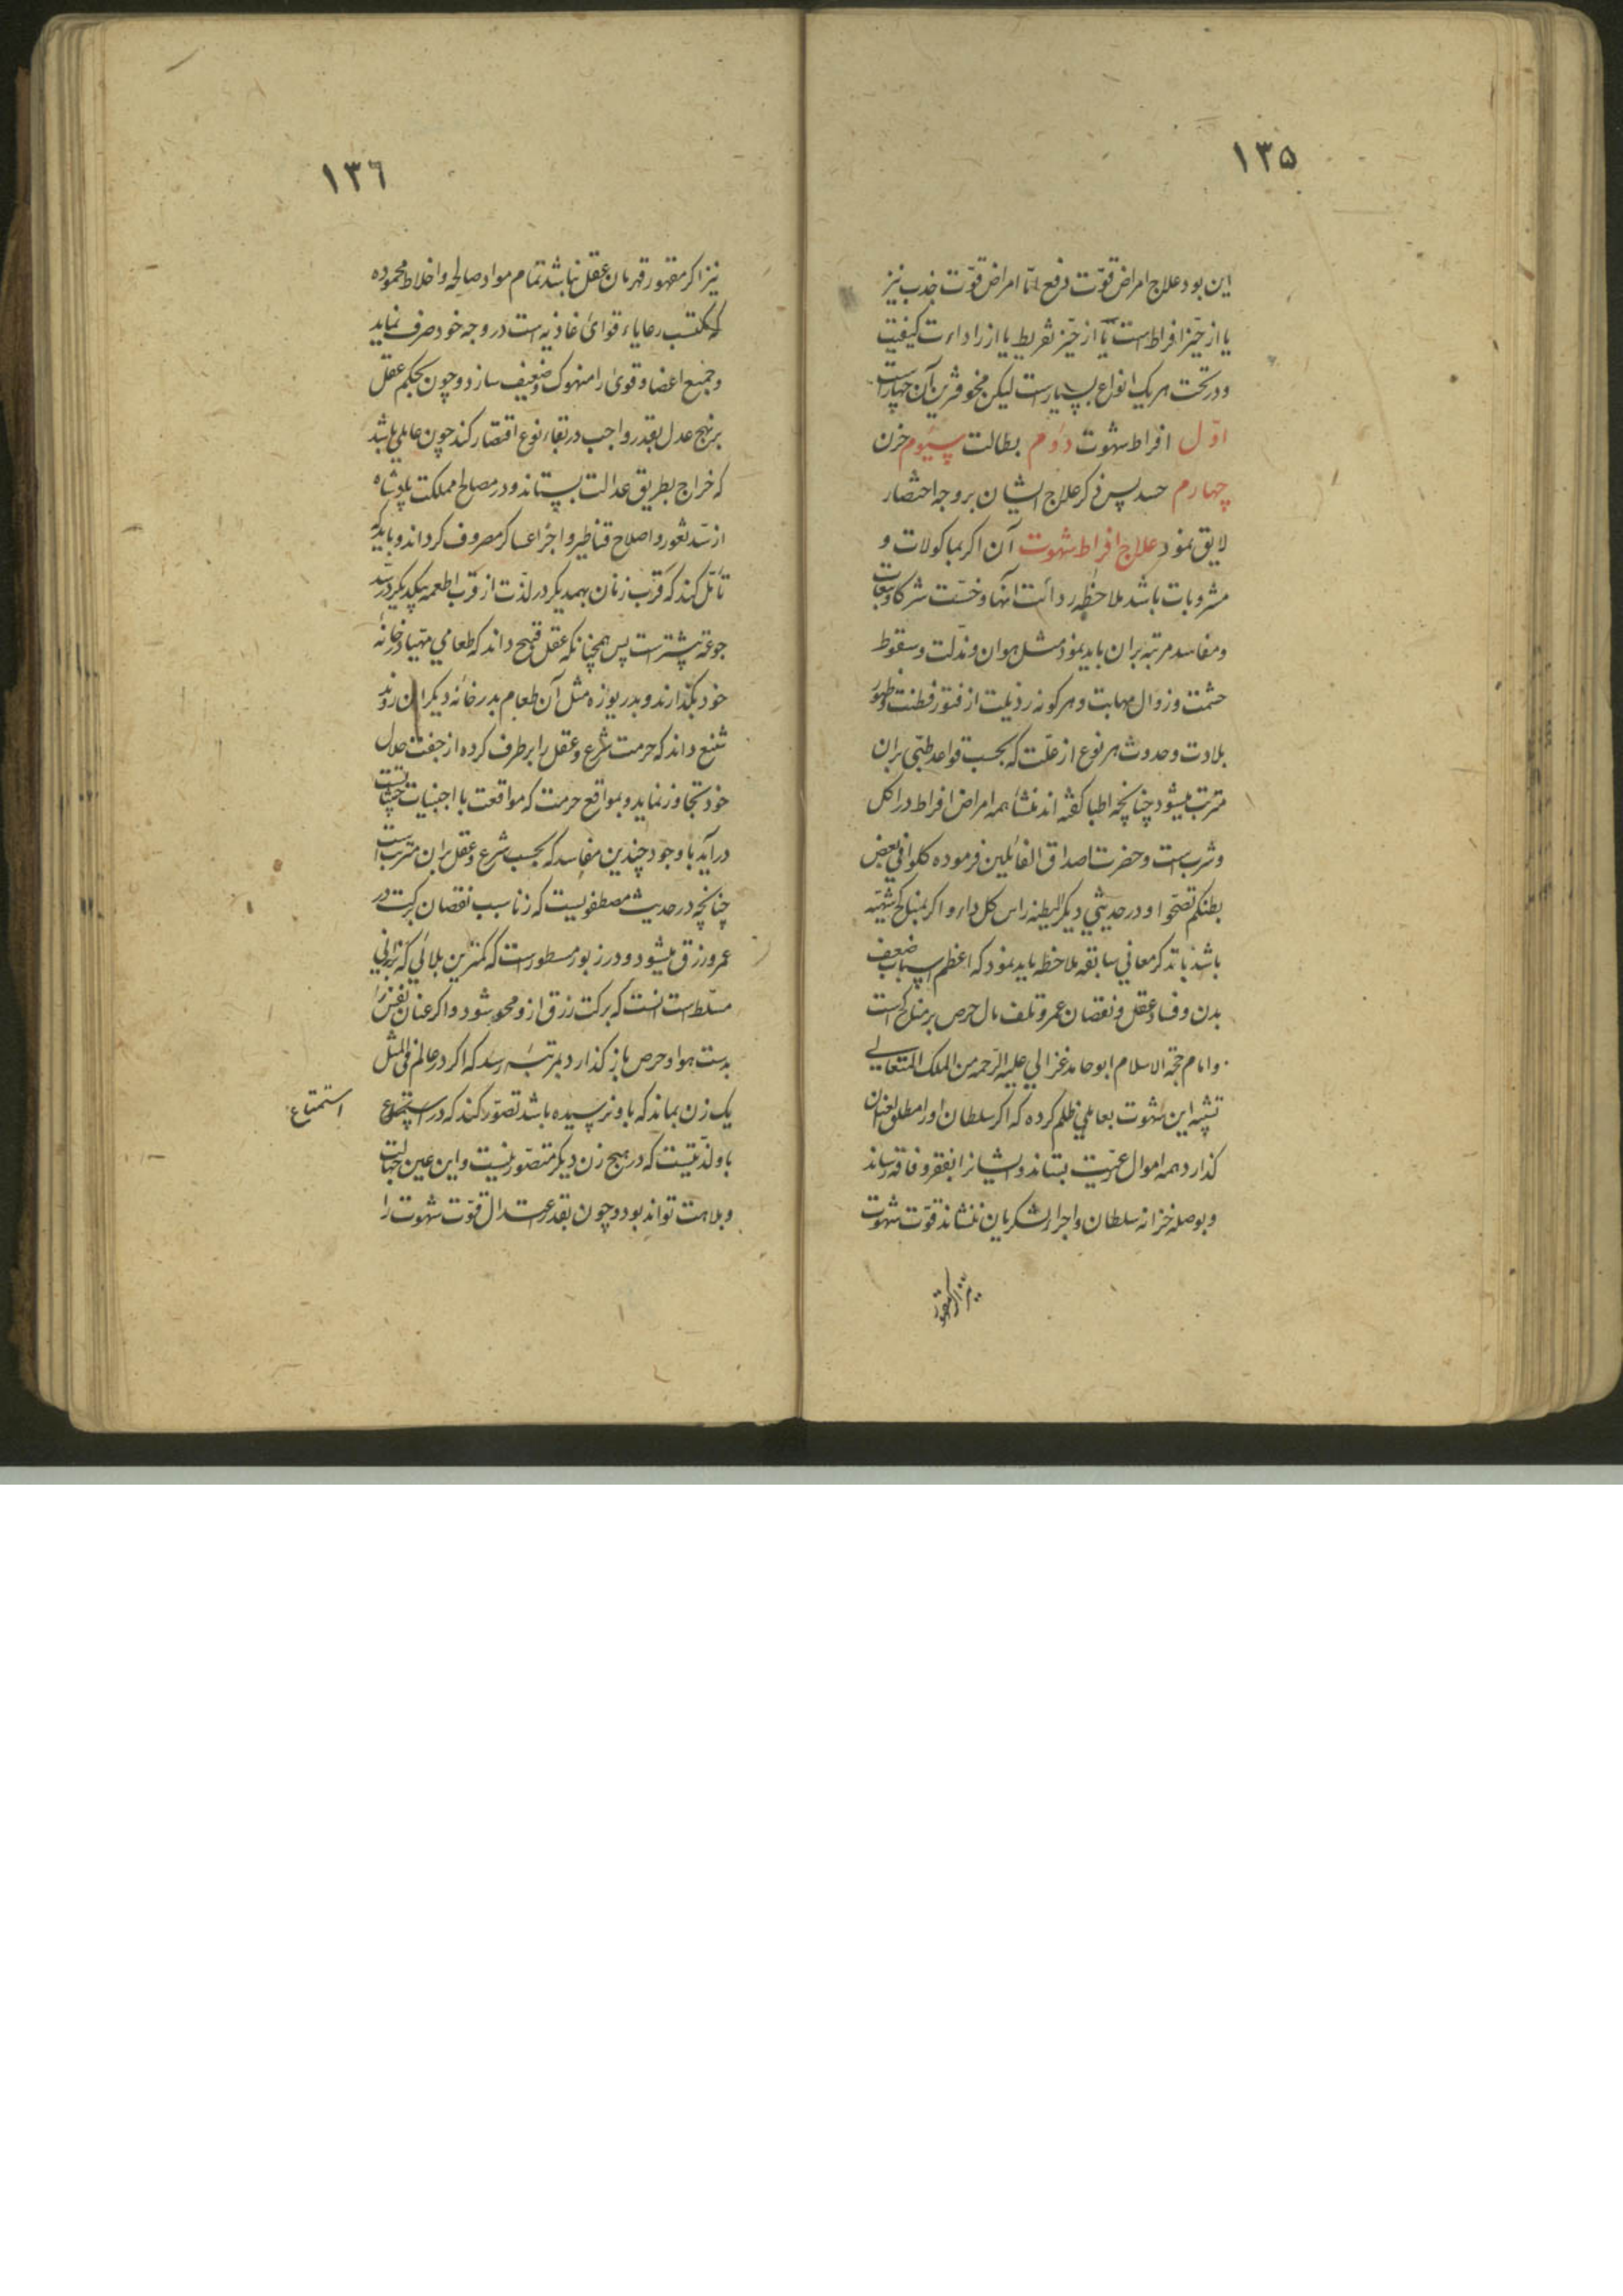 ۱۳۵
این بود علاج امراض قوّت دفع امّا امراض قوّت جذب نیز
یا از حیّز افراط است یا از حیّز تفریط یا از راداءت کیفیت
و در تحت هر یک انواع بسیارست لیکن مخوف‌ترین آن چهارست
اوّل افراط شهوت دوم بطالت سیوم حزن
چهارم حسد پس ذکر علاج ایشان بر وجه اختصار
لایق نمود علاج افراط شهوت آن اکر بماکولات و
مشروبات باشد ملاحظه ردائت آنها و خسّت شرکا و تبعات
و مفاسد مرتبه بران باید نمود مثل هوان و مذلّت و سقوط
حشمت و زوال مهابت و هر کونه رذیلت از فتور فطنت و ظهور
بلادت و حدوث هر نوع از علّت که بحسب قواعد طبّی بران
مترتب میشود چنانچه اطبا کفته اند منشأ همه امراض افراط در اکل
و شرب است و حضرت اصداق القائلین فرموده کلوا فی بعض
بطنکم تصحّوا و در حدیثی دیکر البطنه راس کل داء و اکر بمناکح شهیّه
باشد باتذکر معانی سابقه ملاحظه باید نمود که اعظم اسباب ضعف
بدن و فساد عقل و نقصان عمر و تلف مال حرص بر مناکح است
و امام حجة الاسلام ابو حامد غزالی علیه الرّحمه من الملک المتعالی
تشبیه این شهوت بعاملی ظلم کرده که اکر سلطان او را مطلق العنان
کذارد همه اموال رعیّت بستاند و ایشانرا بفقر و فاقه رساند
و بوصله خزانه سلطان و اجراء لشکریان ننشاند قوّت شهوت
نیز اکر مقهور
۱۳۶
نیز اکر مقهور قهرمان عقل نباشد تمام مواد صالحه و اخلاط محموده
که مکتسب رعایاء قوائ غاذیه است در وجه خود صرف نماید
و جمیع اعضا و قوئ را منهوک و ضعیف سازد و چون بحکم عقل
بر نهج عدل بقدر واجب در بقاء نوع اقتصار کند چون عاملی باشد
که خراج بطریق عدالت بستاند و در مصالح مملکت پادشاه
از سّد ثغور و اصلاح قناطیر و اجراء عساکر مصروف کرداند و باید که
تأمّل کند که قرب زنان بهمدیکر در لذّت از قرب اطعمه بیکدیکر در سّد
جوعه بیشترست پس همچنانکه عقل قبیح داند که طعامی مهیّا در خانهٔ
خود بکذارند و بدریوزه مثل آن طعام بدر خانه دیکران روند
شنیع داند که حرمت شرع و عقل را بر طرف کرده از جفت حلال
خود تجاوز نماید و بمواقع حرمت که مواقعت با اجنبیات
درآید با وجود چندین مفاسد که بحسب شرع و عقل بران مترتب است
چنانچه در حدیث مصطفویست که زنا سبب نقصان برکت در
عمر و رزق میشود و در زبور مسطورست که کمترین بلائی که بزانی
مسلّط است انست که برکت رزق ازو محو شود و اکر عنان نفس را
بدست هوا و حرص باز کذارد بمرتبهٔ رسد که اکر در عالم فی المثل
یک زن بماند که باو نرسیده باشد تصوّر کند که در استمتاع
باو لذّتیست که در هیچ زن دیکر متصوّر نیست و این عین جهالت
و بلاهت تواند بود و چون بقدر اعتدال قوّت شهوت را
استمتاع